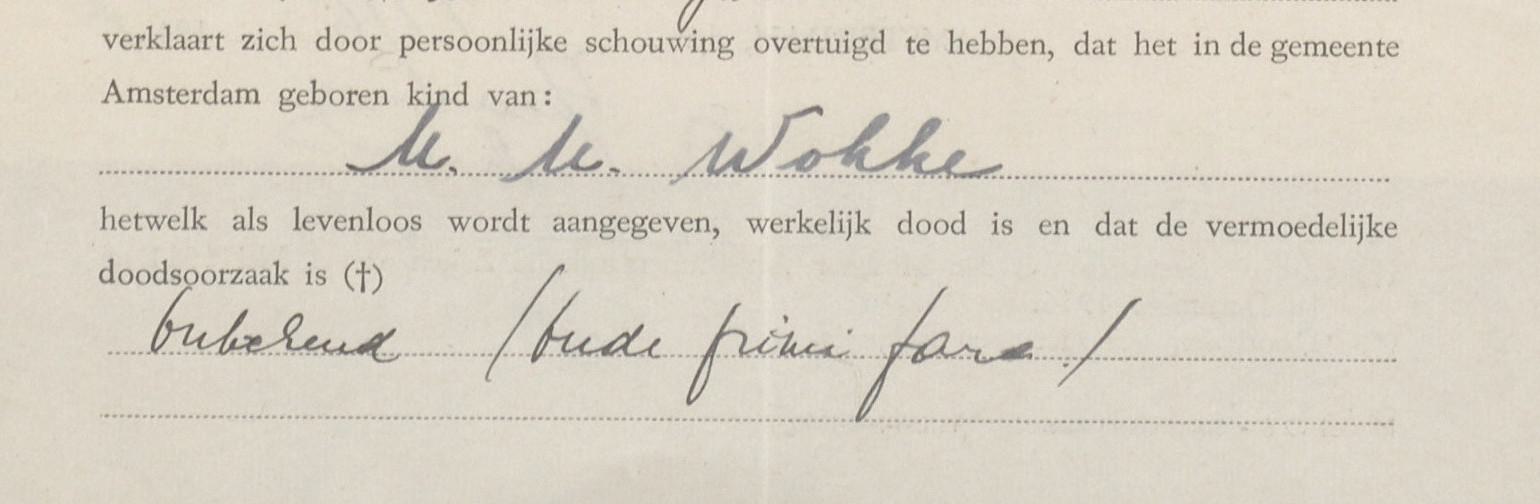 verklaart zich door persoonlijke schouwing overtuigd te hebben, dat het in de gemeente
Amsterdam geboren kind van:
M. M. Wokke
hetwelk als levenloos wordt aangegeven, werkelijk dood is en dat de vermoedelijke
doodsoorzaak is (†)
Onbekend (oude primi para)